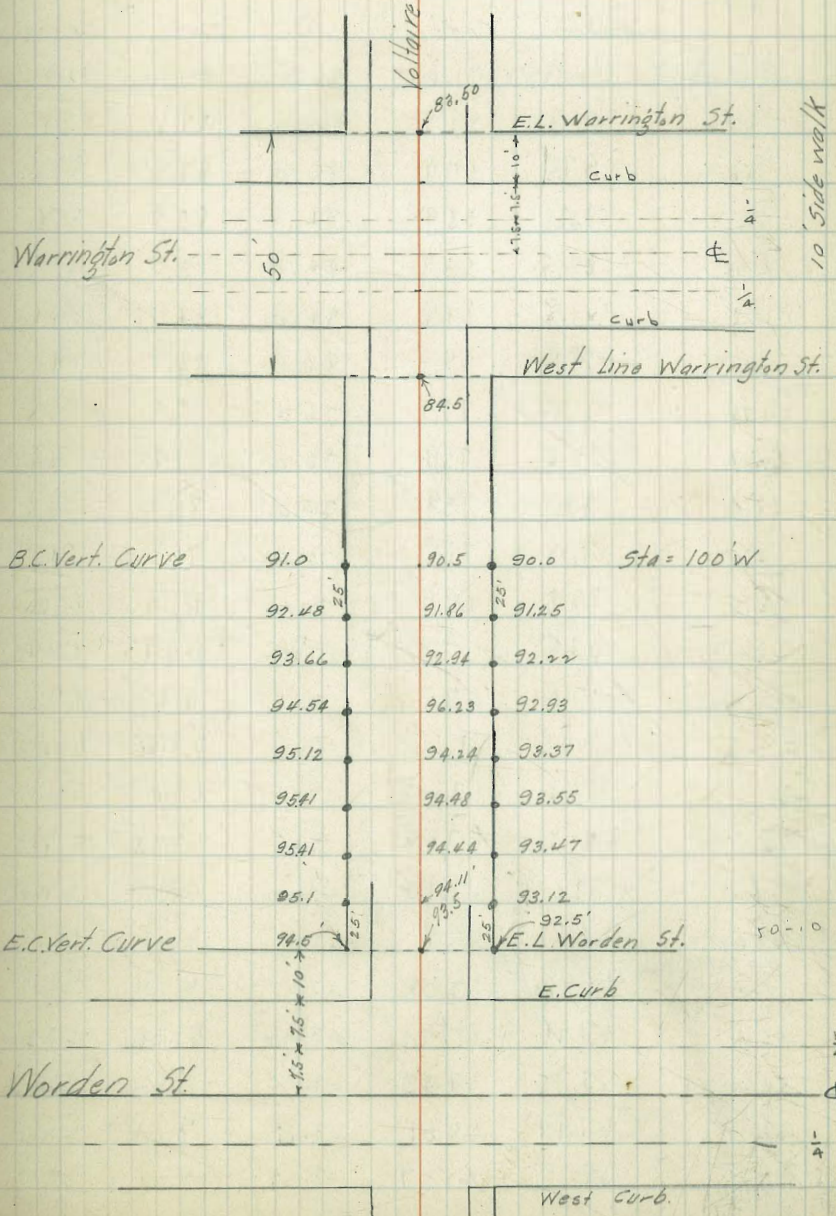 Voltaire
83.50
E.L. Warrington St.
10' Side walk
7.5' 7.5' 10'
Curb
1/4
Warrington St.
50'
℄
1/4
Curb
West Line Warrington St.
84.5
B.C. Vert. Curve 91.0 90.5 90.0 Sta = 100' W
25' 25'
92.48 91.86 91.25
93.66 92.94 92.22
94.54 96.23 92.93
95.12 94.24 93.37
95.41 94.48 93.55
95.41 94.44 93.47
95.1 94.11' 93.12
25' 93.5 25' 92.5'
E.C. Vert. Curve 94.5' E.L. Worden St. 50-10
E. Curb
7.5' 7.5' 10'
Worden St.
1/4
West Curb.